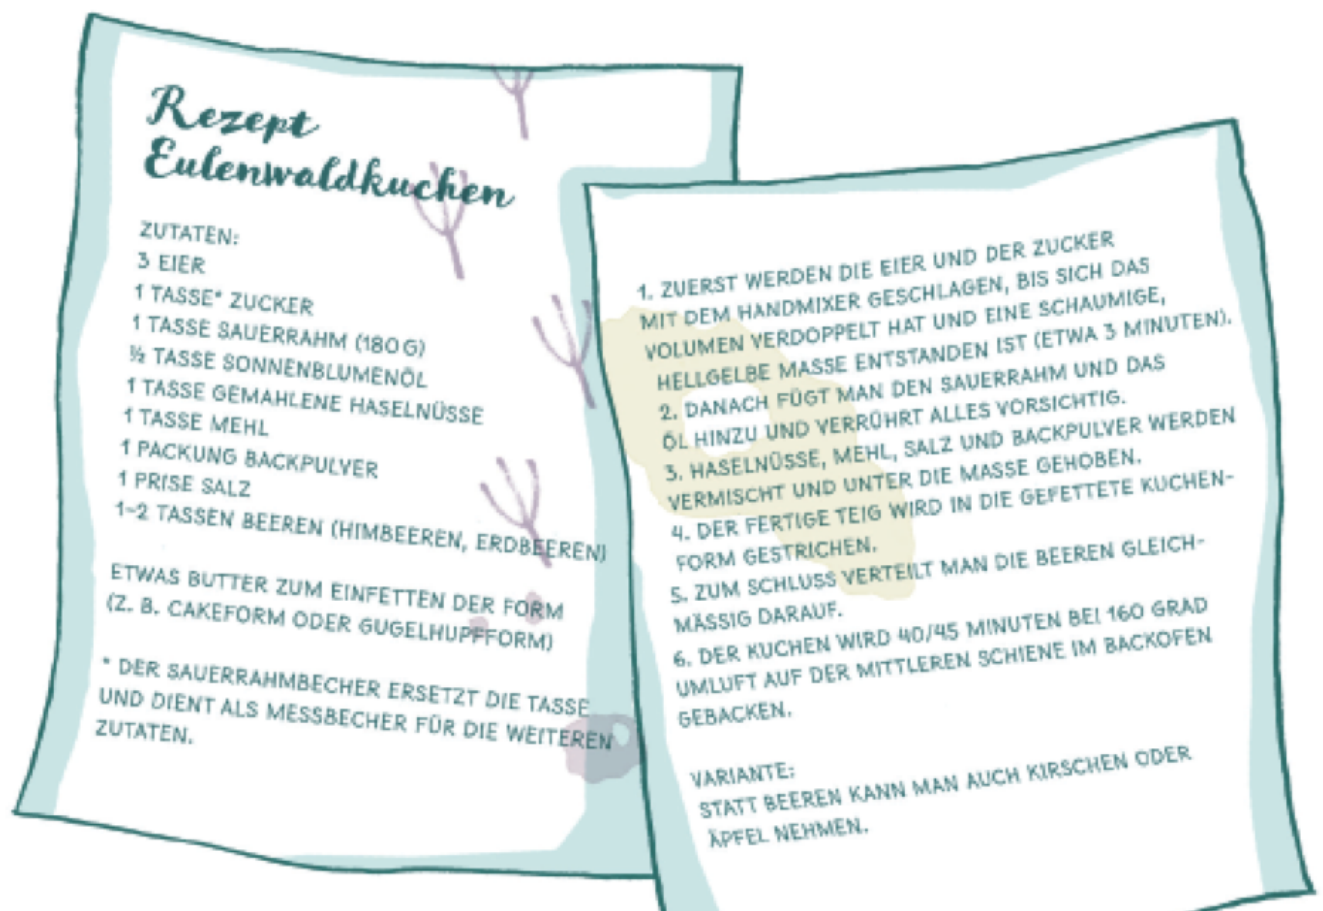 Rezept
Eulenwaldkuchen
ZUTATEN:
3 EIER
1 TASSE* ZUCKER
1 TASSE SAUERRAHM (180 G)
½ TASSE SONNENBLUMENÖL
1 TASSE GEMAHLENE HASELNÜSSE
1 TASSE MEHL
1 PACKUNG BACKPULVER
1 PRISE SALZ
1–2 TASSEN BEEREN (HIMBEEREN, ERDBEEREN)
ETWAS BUTTER ZUM EINFETTEN DER FORM
(Z. B. CAKEFORM ODER GUGELHUPFFORM)
* DER SAUERRAHMBECHER ERSETZT DIE TASSE
UND DIENT ALS MESSBECHER FÜR DIE WEITEREN
ZUTATEN.
1. ZUERST WERDEN DIE EIER UND DER ZUCKER
MIT DEM HANDMIXER GESCHLAGEN, BIS SICH DAS
VOLUMEN VERDOPPELT HAT UND EINE SCHAUMIGE,
HELLGELBE MASSE ENTSTANDEN IST (ETWA 3 MINUTEN).
2. DANACH FÜGT MAN DEN SAUERRAHM UND DAS
ÖL HINZU UND VERRÜHRT ALLES VORSICHTIG.
3. HASELNÜSSE, MEHL, SALZ UND BACKPULVER WERDEN
VERMISCHT UND UNTER DIE MASSE GEHOBEN.
4. DER FERTIGE TEIG WIRD IN DIE GEFETTETE KUCHEN-
FORM GESTRICHEN.
5. ZUM SCHLUSS VERTEILT MAN DIE BEEREN GLEICH-
MÄSSIG DARAUF.
6. DER KUCHEN WIRD 40/45 MINUTEN BEI 160 GRAD
UMLUFT AUF DER MITTLEREN SCHIENE IM BACKOFEN
GEBACKEN.
VARIANTE:
STATT BEEREN KANN MAN AUCH KIRSCHEN ODER
ÄPFEL NEHMEN.